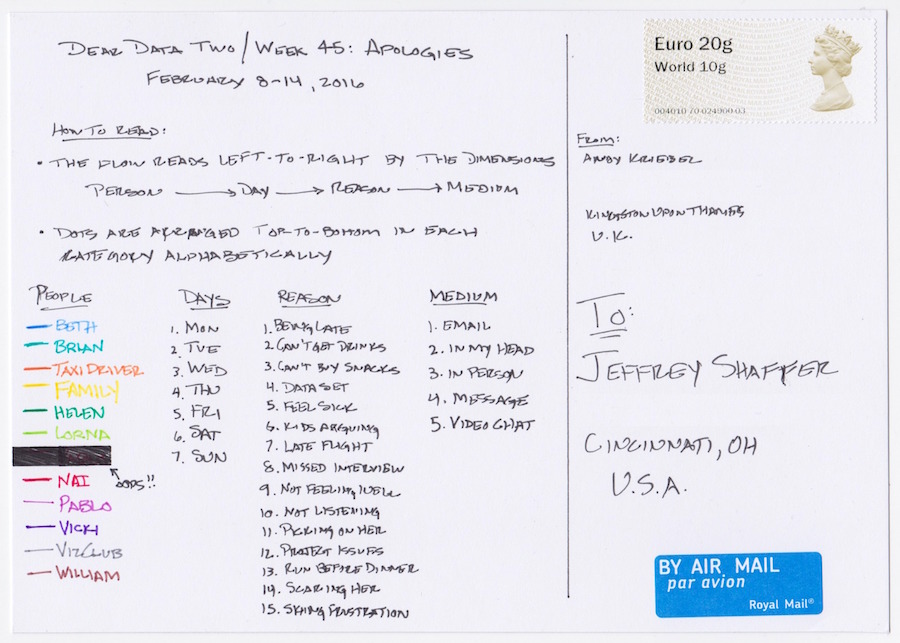 DEAR DATA TWO / WEEK 45: APOLOGIES
FEBRUARY 8-14, 2016
HOW TO READ:
• THE FLOW READS LEFT-TO-RIGHT BY THE DIMENSIONS
PERSON → DAY → REASON → MEDIUM
• DOTS ARE ARRANGED TOP-TO-BOTTOM IN EACH
CATEGORY ALPHABETICALLY
PEOPLE
BETH
BRIAN
TAXI DRIVER
FAMILY
HELEN
LORNA
OOPS!!
NAI
PABLO
VICKI
VIZCLUB
WILLIAM
DAYS
1. MON
2. TUE
3. WED
4. THU
5. FRI
6. SAT
7. SUN
REASON
1. BEING LATE
2. CAN'T GET DRINKS
3. CAN'T BUY SNACKS
4. DATA SET
5. FEEL SICK
6. KIDS ARGUING
7. LATE FLIGHT
8. MISSED INTERVIEW
9. NOT FEELING WELL
10. NOT LISTENING
11. PICKING ON HER
12. PROJECT ISSUES
13. RUN BEFORE DINNER
14. SCARING HER
15. SKIING FRUSTRATION
MEDIUM
1. EMAIL
2. IN MY HEAD
3. IN PERSON
4. MESSAGE
5. VIDEO CHAT
Euro 20g
World 10g
004010 70 024900 03
FROM:
ANDY KRIEBEL
KINGSTON UPON THAMES
U.K.
TO:
JEFFREY SHAFFER
CINCINNATI, OH
U.S.A.
BY AIR MAIL
par avion
Royal Mail®